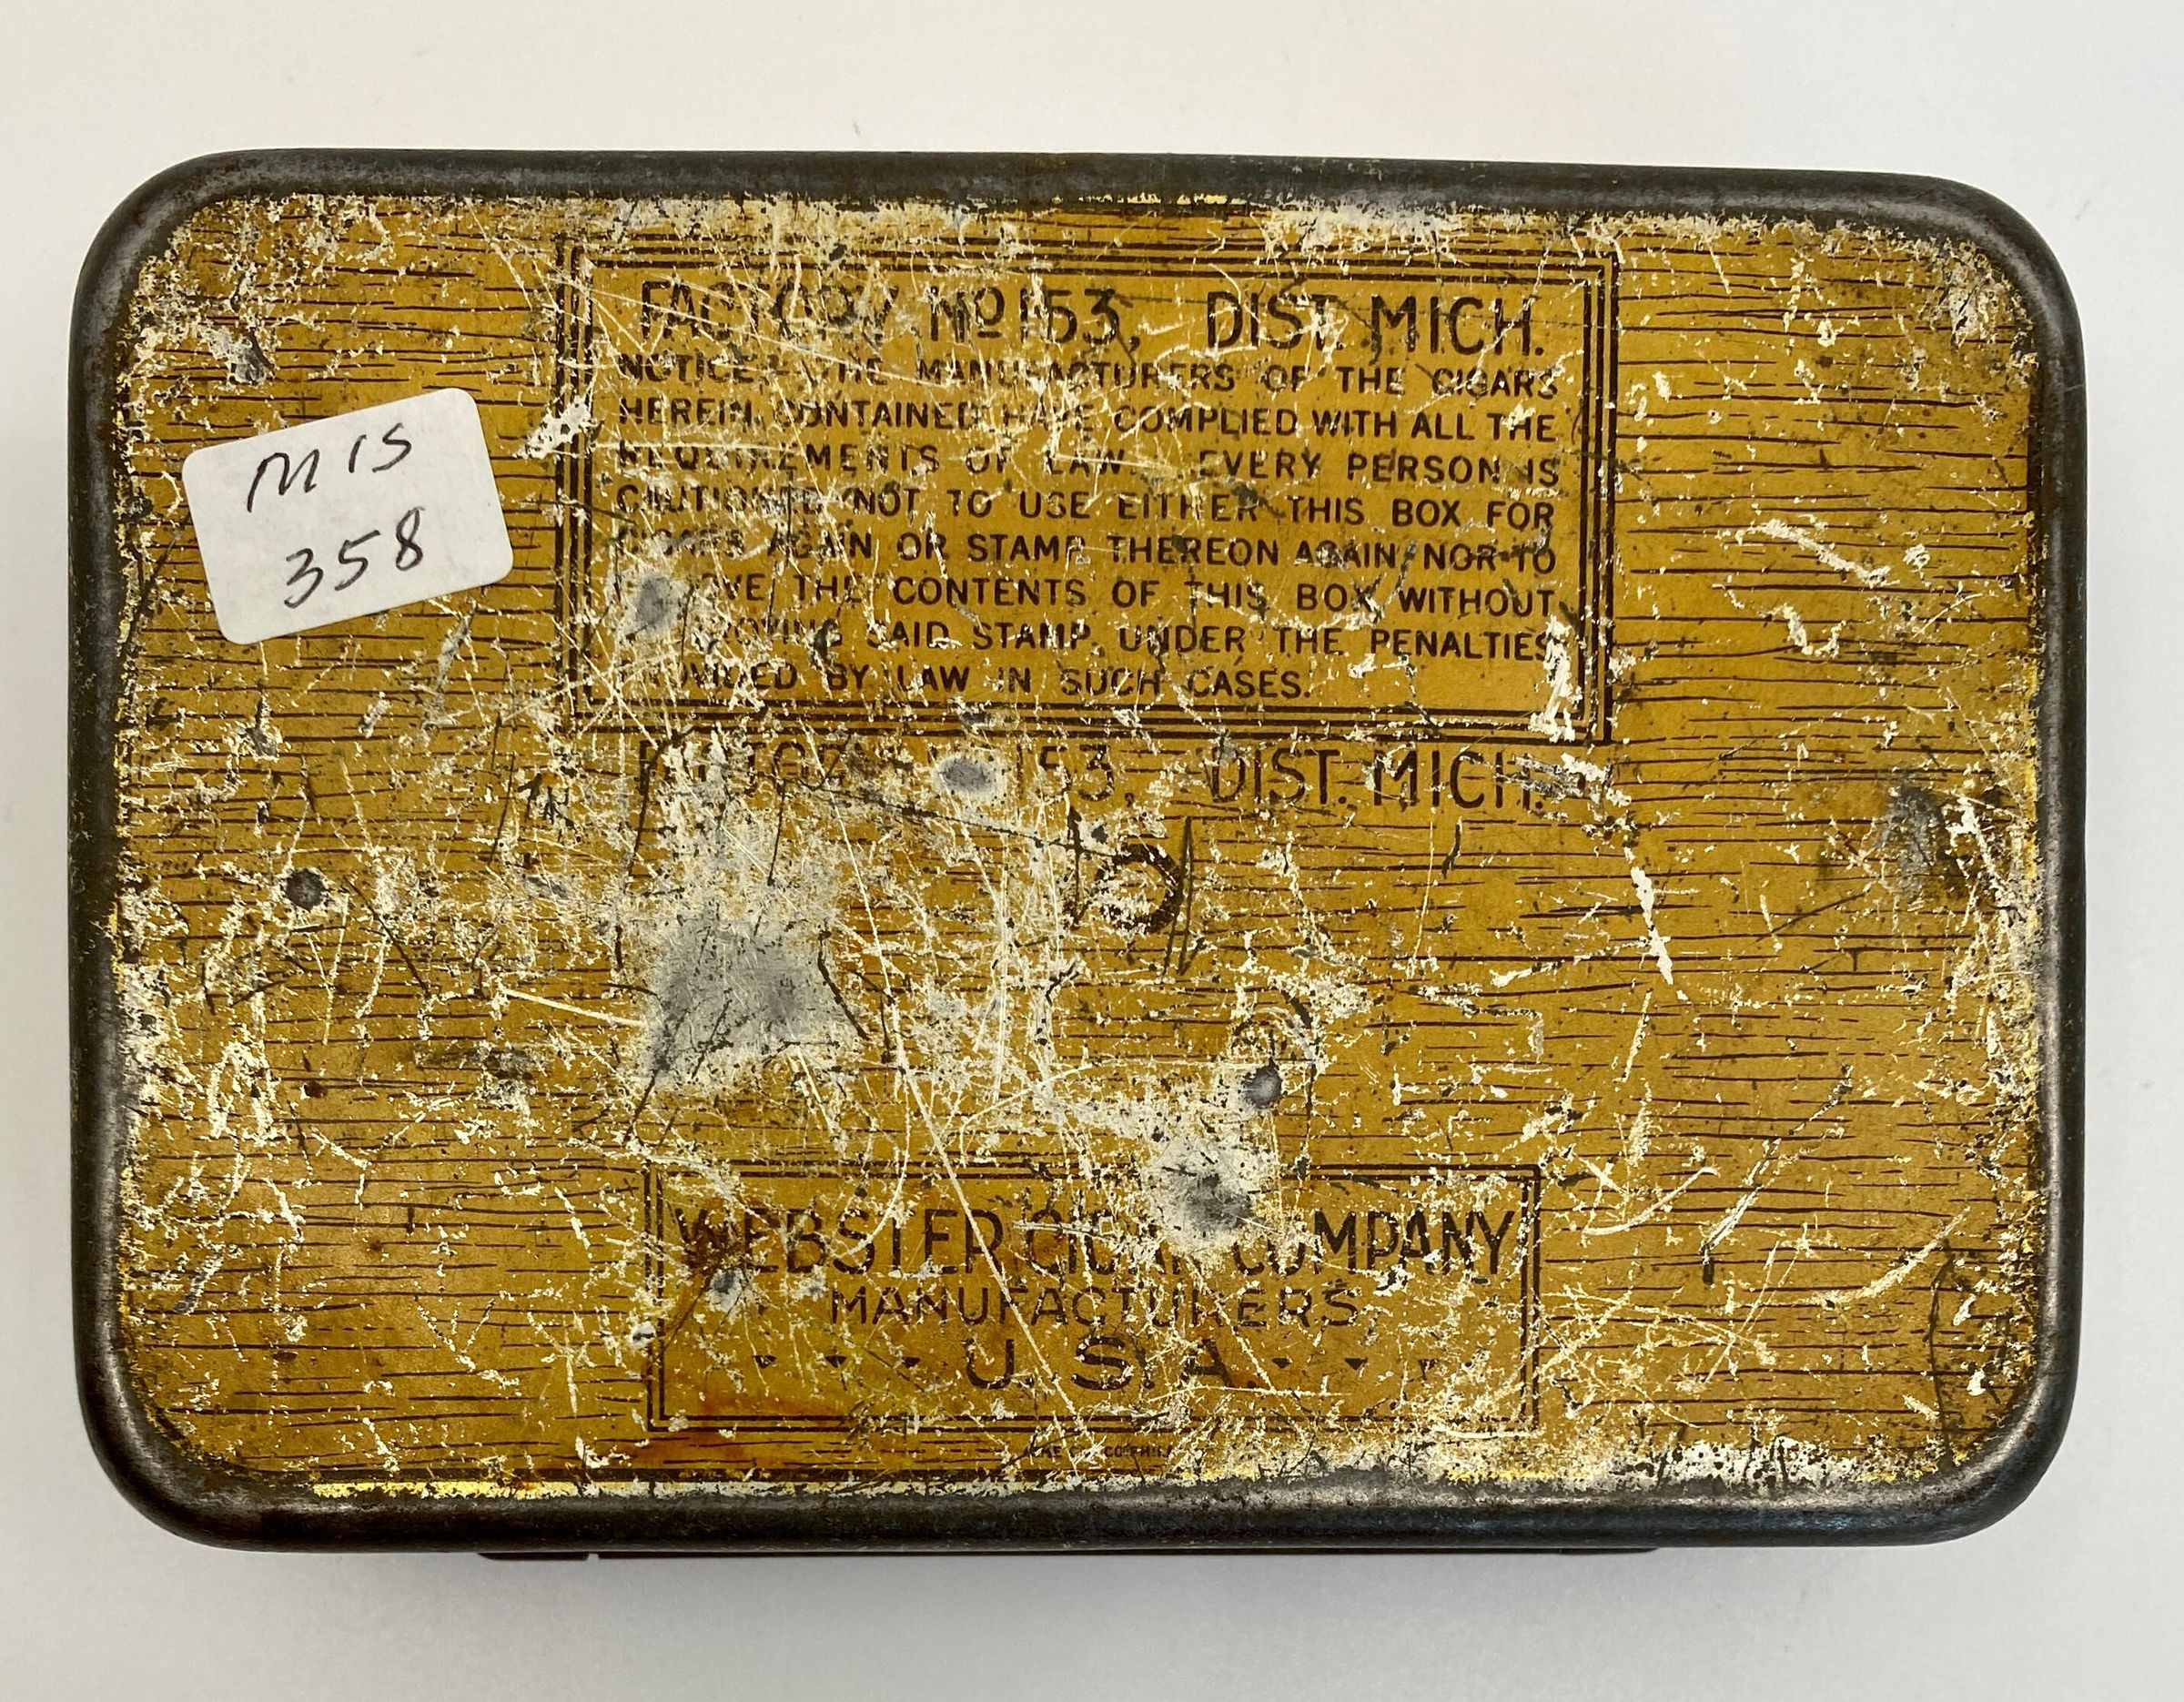 MIS
358
FACTORY No 153, DIST. MICH.
NOTICE:- THE MANUFACTURERS OF THE CIGARS
HEREIN CONTAINED HAVE COMPLIED WITH ALL THE
REQUIREMENTS OF LAW. EVERY PERSON IS
CAUTIONED NOT TO USE EITHER THIS BOX FOR
CIGARS AGAIN OR STAMP THEREON AGAIN, NOR TO
REMOVE THE CONTENTS OF THIS BOX WITHOUT
DESTROYING SAID STAMP, UNDER THE PENALTIES
PROVIDED BY LAW IN SUCH CASES.
153, DIST. MICH.
WEBSTER CIGAR COMPANY
MANUFACTURERS
U.S.A.